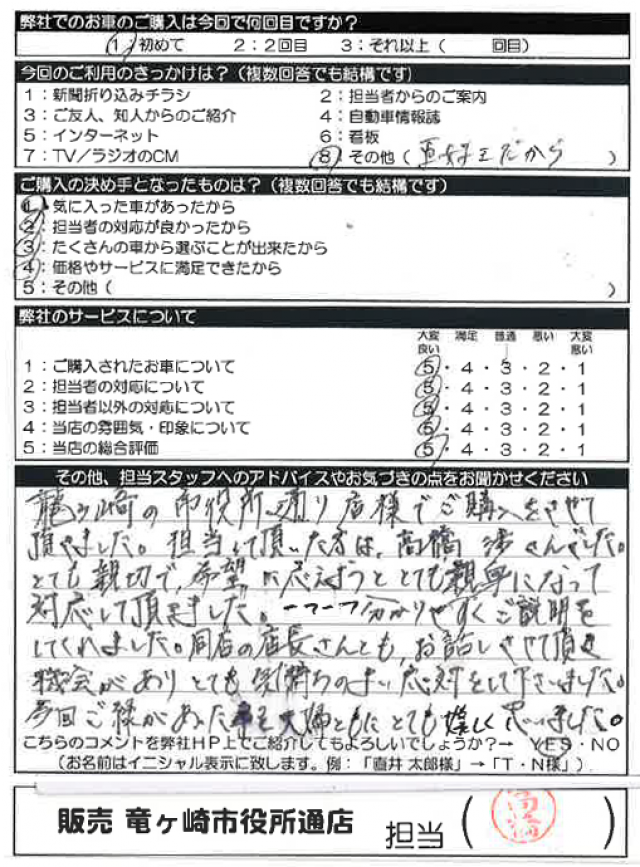 弊社でのお車のご購入は今回で何回目ですか?
1:初めて 2:2回目 3:それ以上( 回目)
今回のご利用のきっかけは?(複数回答でも結構です)
1:新聞折り込みチラシ 2:担当者からのご案内
3:ご友人、知人からのご紹介 4:自動車情報誌
5:インターネット 6:看板
7:TV/ラジオのCM 8:その他( だから )
ご購入の決め手となったものは?(複数回答でも結構です)
1:気に入った車があったから
2:担当者の対応が良かったから
3:たくさんの車から選ぶことが出来たから
4:価格やサービスに満足できたから
5:その他( )
弊社のサービスについて
大変良い 満足 普通 悪い 大変悪い
1:ご購入されたお車について 5・4・3・2・1
2:担当者の対応について 5・4・3・2・1
3:担当者以外の対応について 5・4・3・2・1
4:当店の雰囲気・印象について 5・4・3・2・1
5:当店の総合評価 5・4・3・2・1
その他、担当スタッフへのアドバイスやお気づきの点をお聞かせください
龍ヶ崎の市役所通り店様でご購入をさせて
頂きました。担当して頂いた方は、高橋 渉さんでした。
とても親切で、希望に応えようととても親身になって
対応して頂きました。一つ一つ分かりやすくご説明を
してくれました。同店の店長さんとも、お話しさせて頂き
機会がありとても気持ちのよい応対をして下さいました。
今回ご縁があった車を夫婦ともにとても嬉しく思いました。
こちらのコメントを弊社HP上でご紹介してもよろしいでしょうか?→ YES・NO
(お名前はイニシャル表示に致します。例:「直井 太郎様」→「T・N様」)
販売 竜ヶ崎市役所通店 担当( )